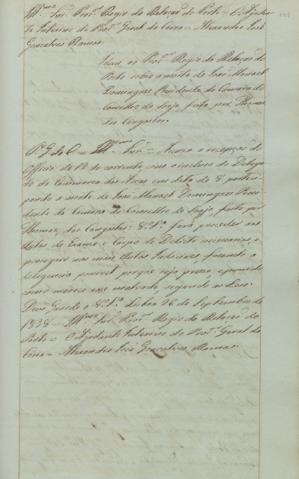 Illmo Snr. Procor Regio da Relação do Porto = O Ajudante
Interino do Procor Geral da Coroa = Alexandre José
Gonçalves Ramos.
Idem ao Procor Regio da Relação do
Porto sobre a morte de José Manoel
Domingues Presidente da Camara do
Concelho de feita por Thomas
das Congostas.
P. G. da C. = Illmo Snr. = Accuso a recepção do
Officio de 12 do corrente, com o incluso do Delegado
da Comarca dos Arcos em data de 8 participando
a morte de José Manoel Domingues Presidente
da Camara do Concelho de feita por
Thomas das Congostas: V. Sa. fará proceder aos
Autos de Exame e Corpo de Delicto necessarios, e
proseguir nos mais Autos fazendo a
diligencia possivel porque seja prezo, e punido
segundo as Leis.
Deos Guarde a V. Sa. Lisboa 26 de Septembro de
1838 = Illmo Snr. Procor Regio da Relação do
Porto = O Ajudante Interino do Procor Geral da
Coroa = Alexandre José Gonçalves Ramos.